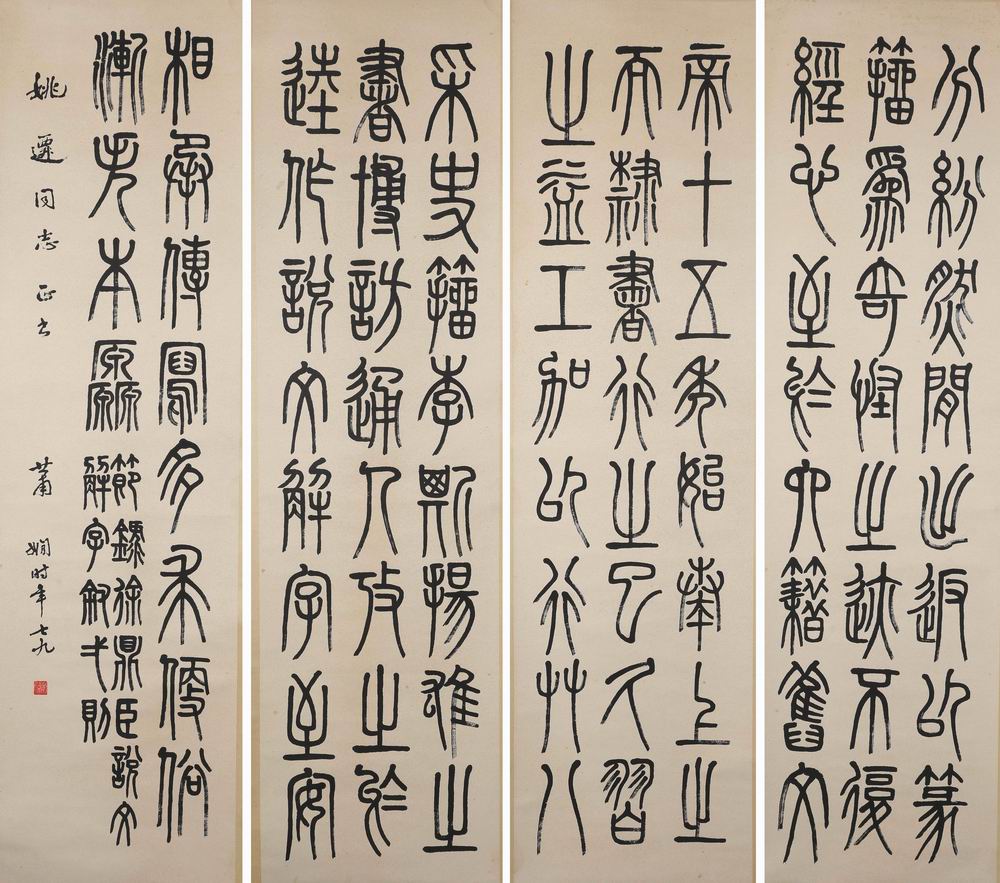 采史籀李斯揚雄之
書博訪通人攷之於
逵作說文解字至安
帝十五年始奏上之
而隸書行之已久習
之益工加以行艸八
分紛然閒出返以篆
籀爲奇怪之迹不復
經心至於六籍舊文
相承傳寫多求便俗
漸失本原
節錄徐鼎臣說文
解字敘弍則
姚遷同志正
蕭嫻時年七九